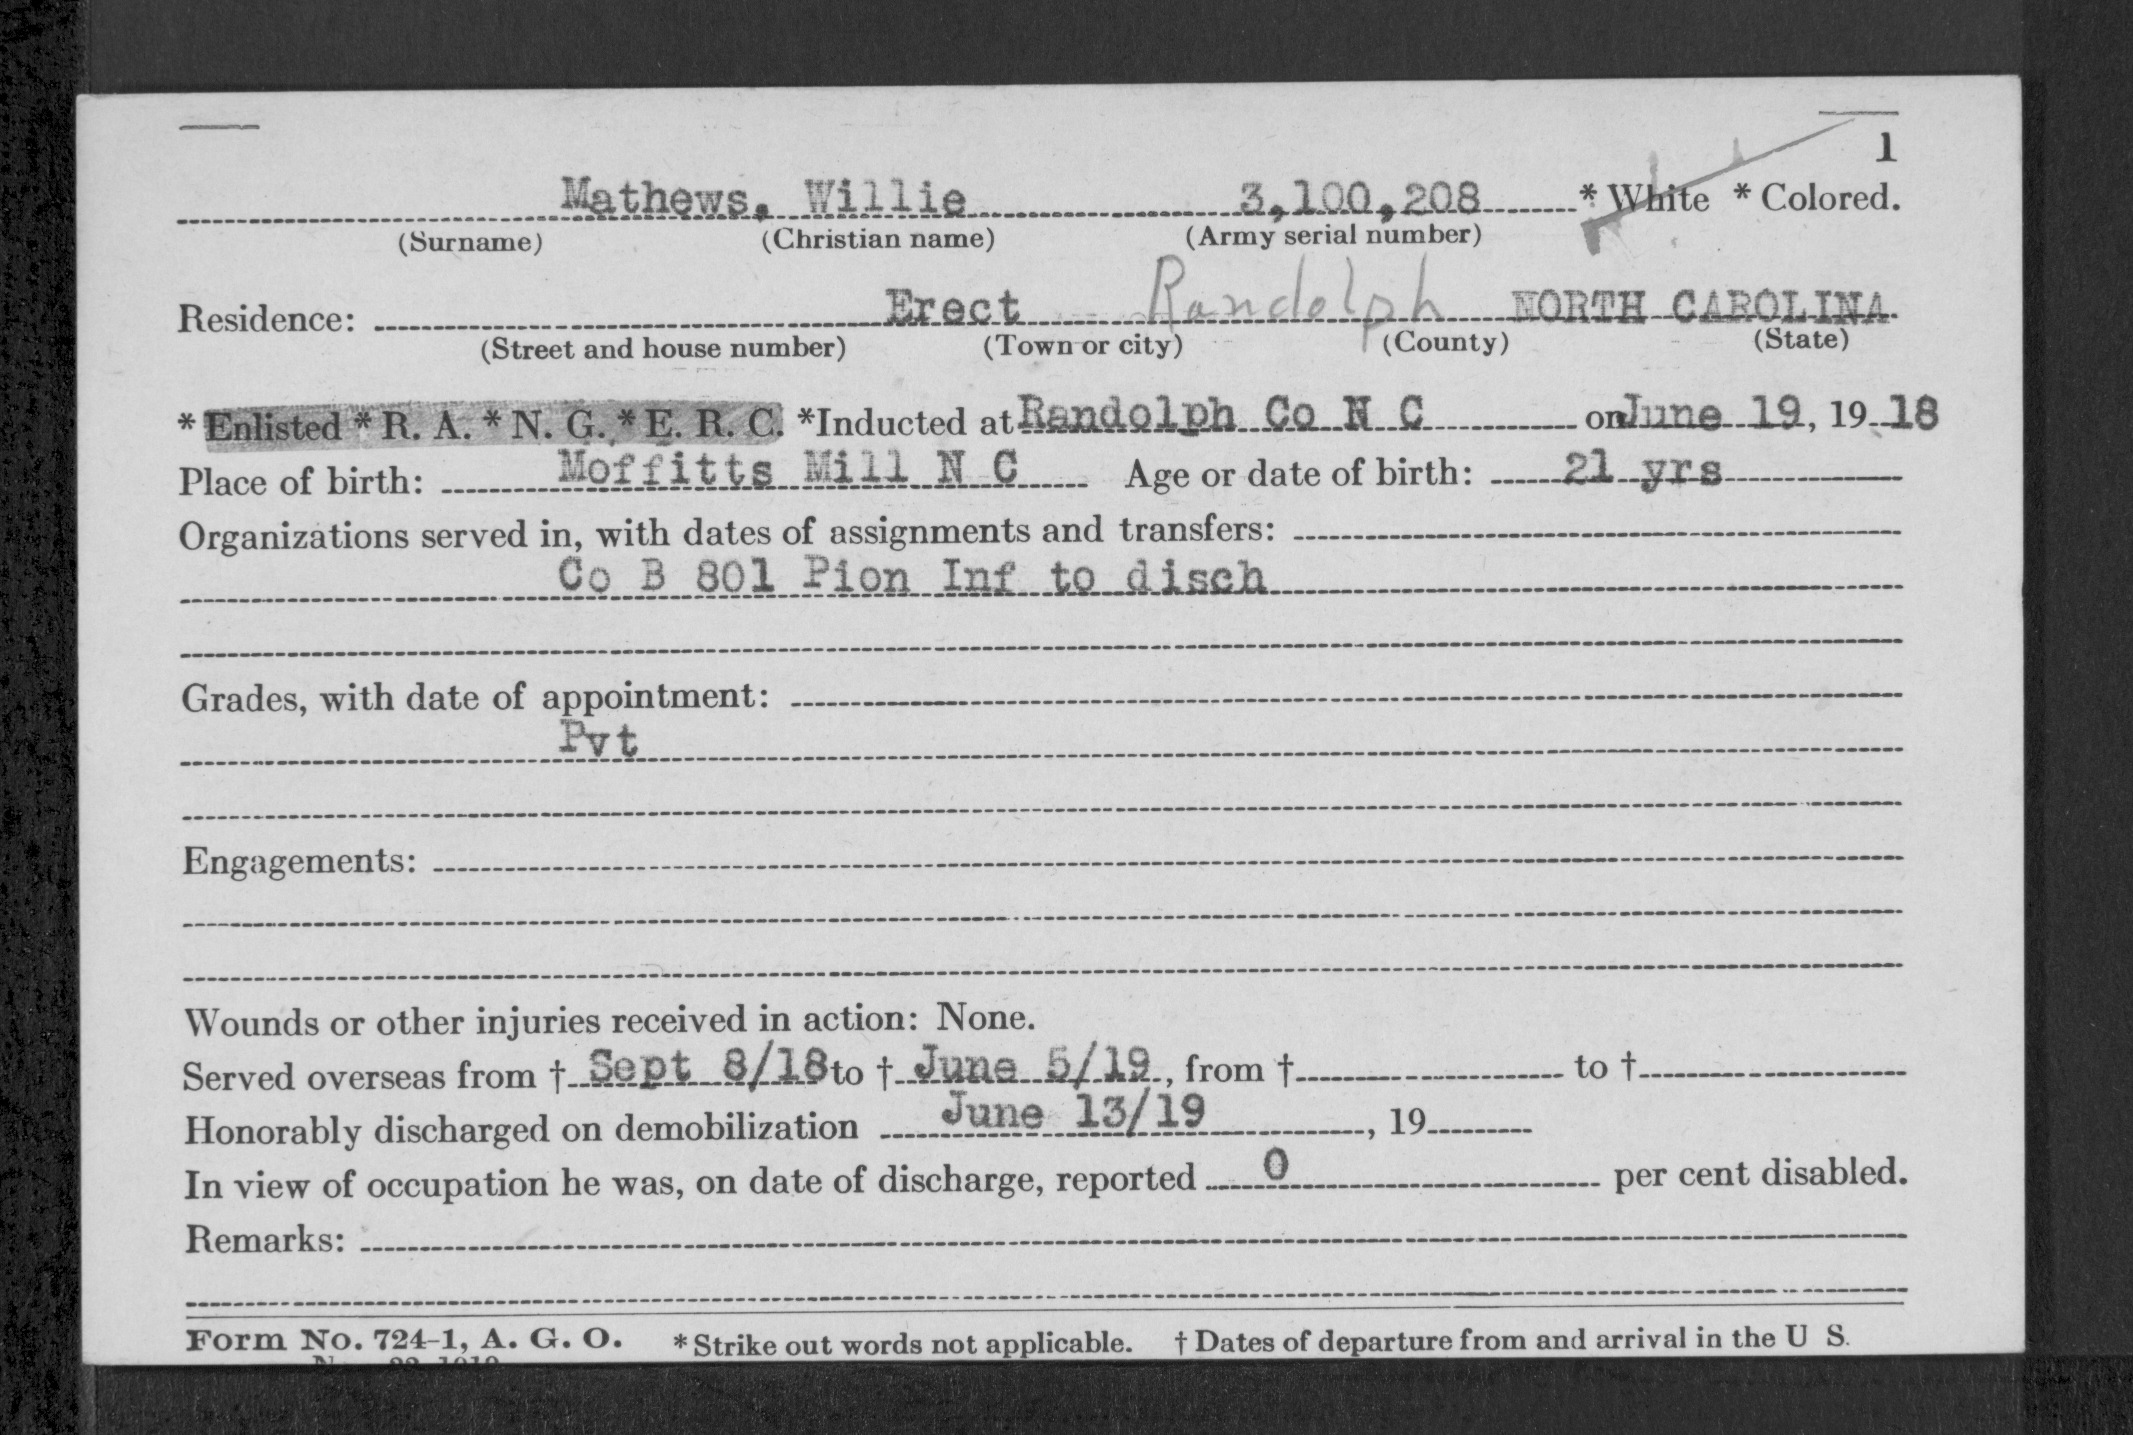 1
Mathews, Willie 3,100,208 * White * Colored.
(Surname) (Christian name) (Army serial number)
Residence: Erect Randolph NORTH CAROLINA
(Street and house number) (Town or city) (County) (State)
* Enlisted * R. A. * N. G. * E. R. C. *Inducted at Randolph Co N C on June 19, 19 18
Place of birth: Moffitts Mill N C Age or date of birth: 21 yrs
Organizations served in, with dates of assignments and transfers:
Co B 801 Pion Inf to disch
Grades, with date of appointment:
Pvt
Engagements:
Wounds or other injuries received in action: None.
Served overseas from † Sept 8/18 to † June 5/19, from † to †
Honorably discharged on demobilization June 13/19, 19
In view of occupation he was, on date of discharge, reported 0 per cent disabled.
Remarks:
Form No. 724-1, A. G. O. * Strike out words not applicable. † Dates of departure from and arrival in the U S.